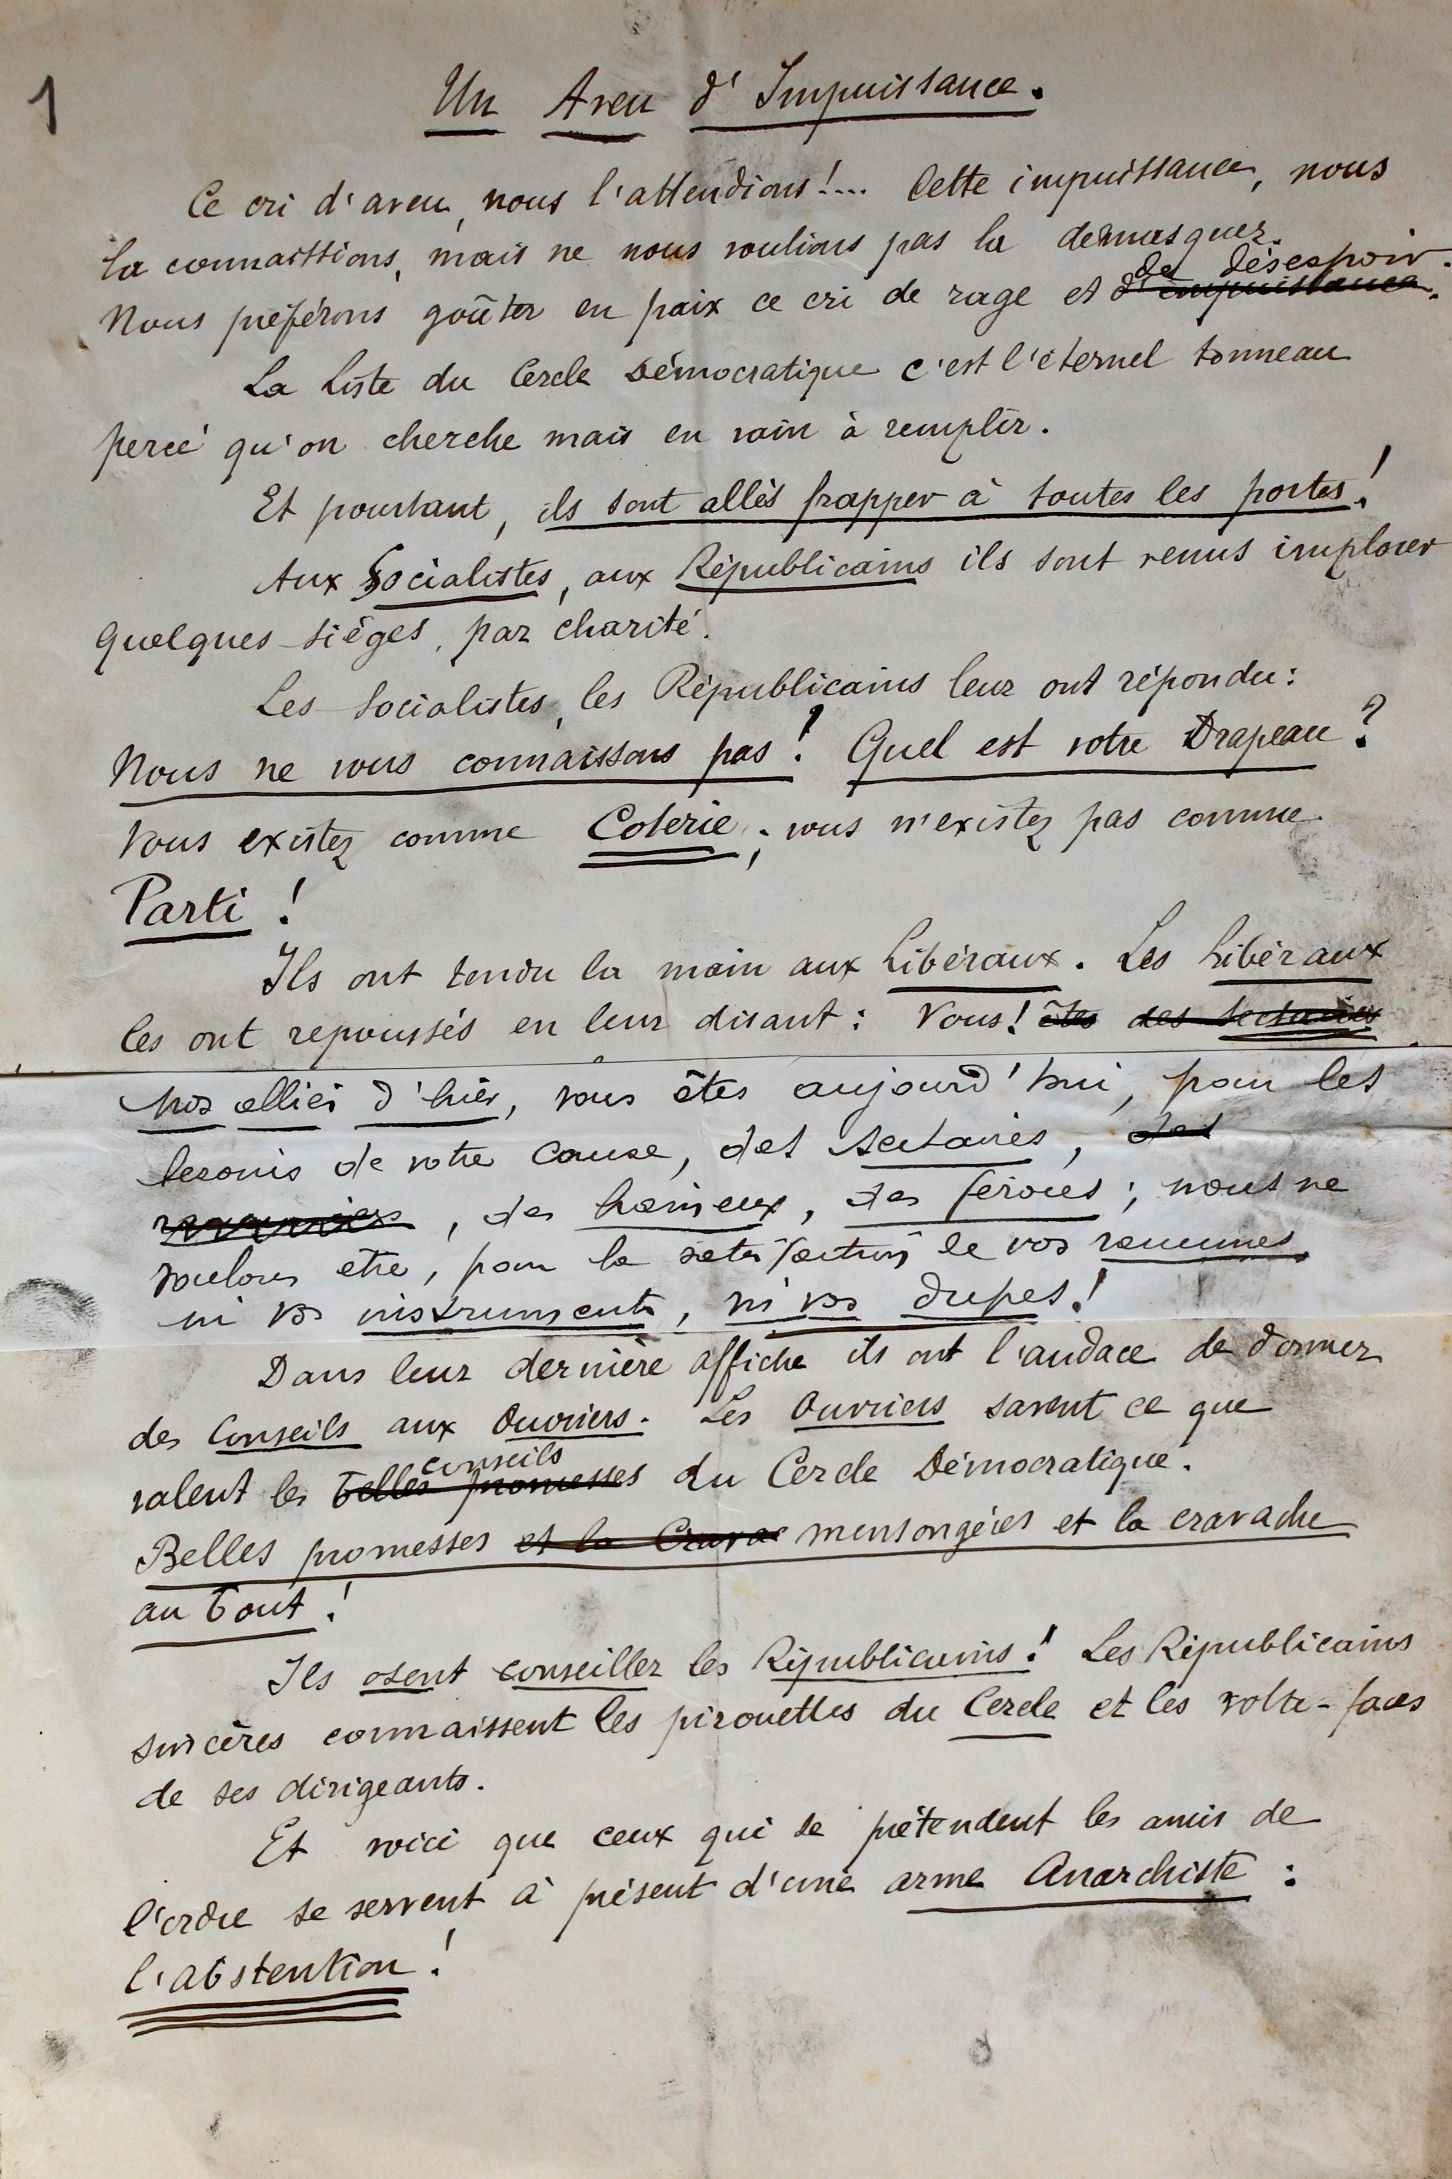 1
Un Aveu d'Impuissance.
Ce cri d'aveu, nous l'attendions!... Cette impuissance, nous
la connaissions, mais ne nous voulions pas la démasquer.
de désespoir.
Nous préférons goûter en paix ce cri de rage et d'impuissance.
La Liste du Cercle Démocratique c'est l'éternel tonneau
percé qu'on cherche mais en vain à remplir.
Et pourtant, ils sont allés frapper à toutes les portes!
Aux Socialistes, aux Républicains ils sont venus implorer
quelques sièges, par charité.
Les Socialistes, les Républicains leur ont répondu:
Nous ne vous connaissons pas! Quel est votre Drapeau?
Vous existez comme Coterie; vous n'existez pas comme
Parti!
Ils ont tendu la main aux Libéraux. Les Libéraux
les ont repoussés en leur disant: Vous! êtes des sectaires
nos alliés d'hier, vous êtes aujourd'hui, pour les
besoins de votre cause, des sectaires, des
, des haineux, des féroces; nous ne
voulons être, pour la satisfaction de vos rancunes
ni vos instruments, ni vos dupes!
Dans leur dernière affiche ils ont l'audace de donner
des Conseils aux Ouvriers. Les Ouvriers savent ce que
conseils
valent les belles promesses du Cercle Démocratique.
Belles promesses et la Crava mensongères et la cravache
au bout!
Ils osent conseiller les Républicains! Les Républicains
sincères connaissent les pirouettes du Cercle et les volte-faces
de ses dirigeants.
Et voici que ceux qui se prétendent les amis de
l'ordre se servent à présent d'une arme Anarchiste:
l'abstention!